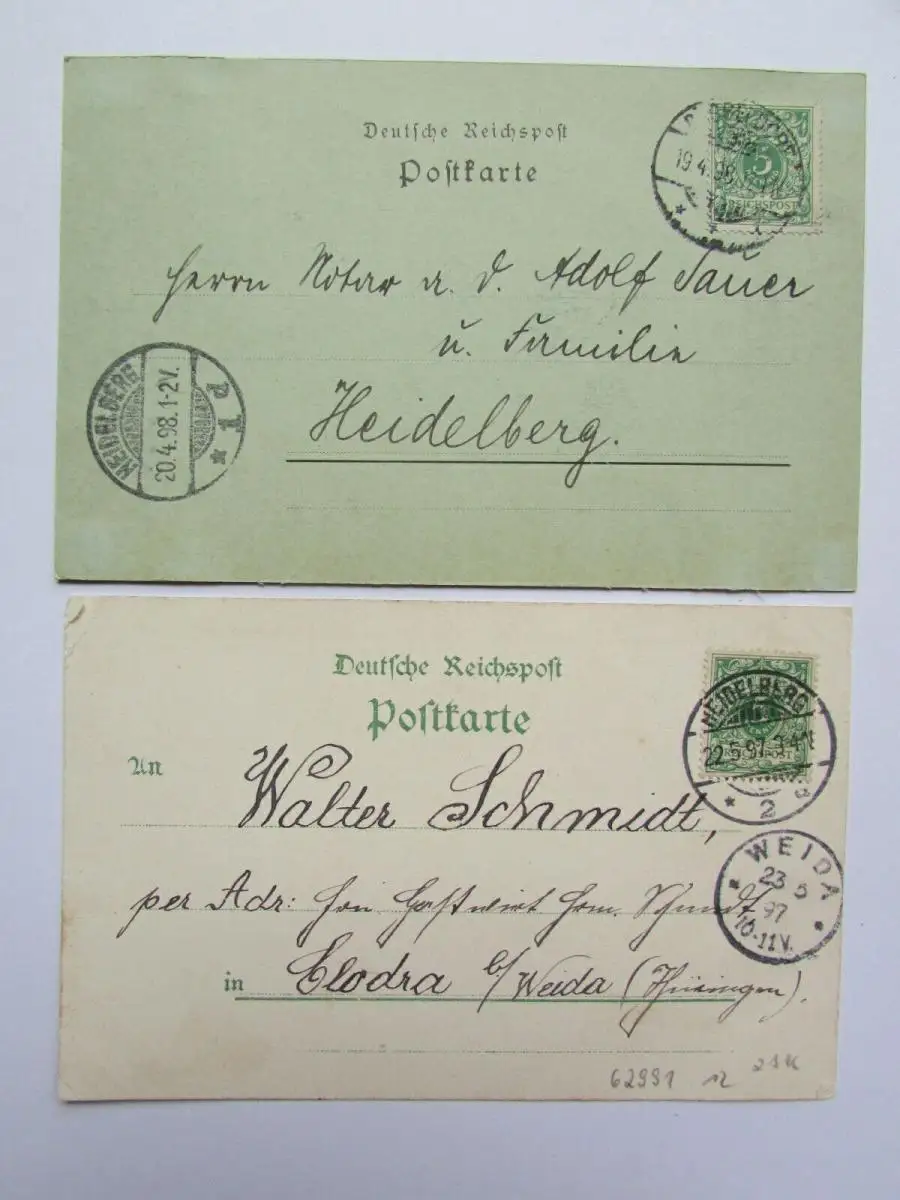 Deutsche Reichspost
Postkarte
19.4.98
5
REICHSPOST
Herrn Notar a. D. Adolf Sauer
u. Familie
Heidelberg.
HEIDELBERG
20.4.98.1-2V.
Deutsche Reichspost
Postkarte
An
HEIDELBERG
22.5.97.3-4N
2
Walter Schmidt,
WEIDA
23 5
97
10-11V.
per Adr: Hrn Gastwirt Herm. Schmidt
in Clodra b/Weida (Thüringen).
62991